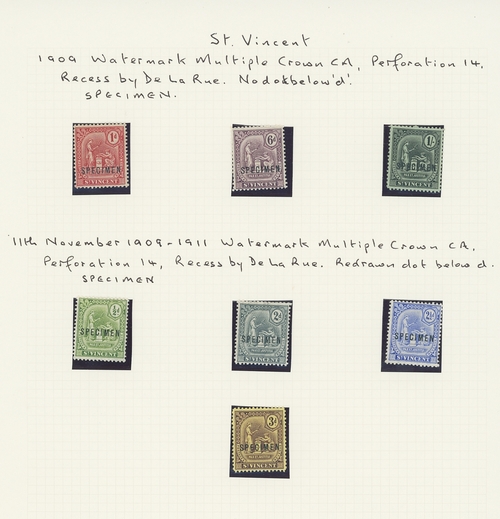 St. Vincent
1909 Watermark Multiple Crown CA, Perforation 14.
Recess by De La Rue. No dot below 'd'.
SPECIMEN.
1d
SPECIMEN
ST VINCENT
6d
SPECIMEN
ST VINCENT
1/-
SPECIMEN
ST VINCENT
11th November 1909-1911 Watermark Multiple Crown CA.
Perforation 14, Recess by De La Rue. Redrawn dot below d.
SPECIMEN
½d
SPECIMEN
ST VINCENT
2d
SPECIMEN
ST VINCENT
2½d
SPECIMEN
ST VINCENT
3d
SPECIMEN
ST VINCENT